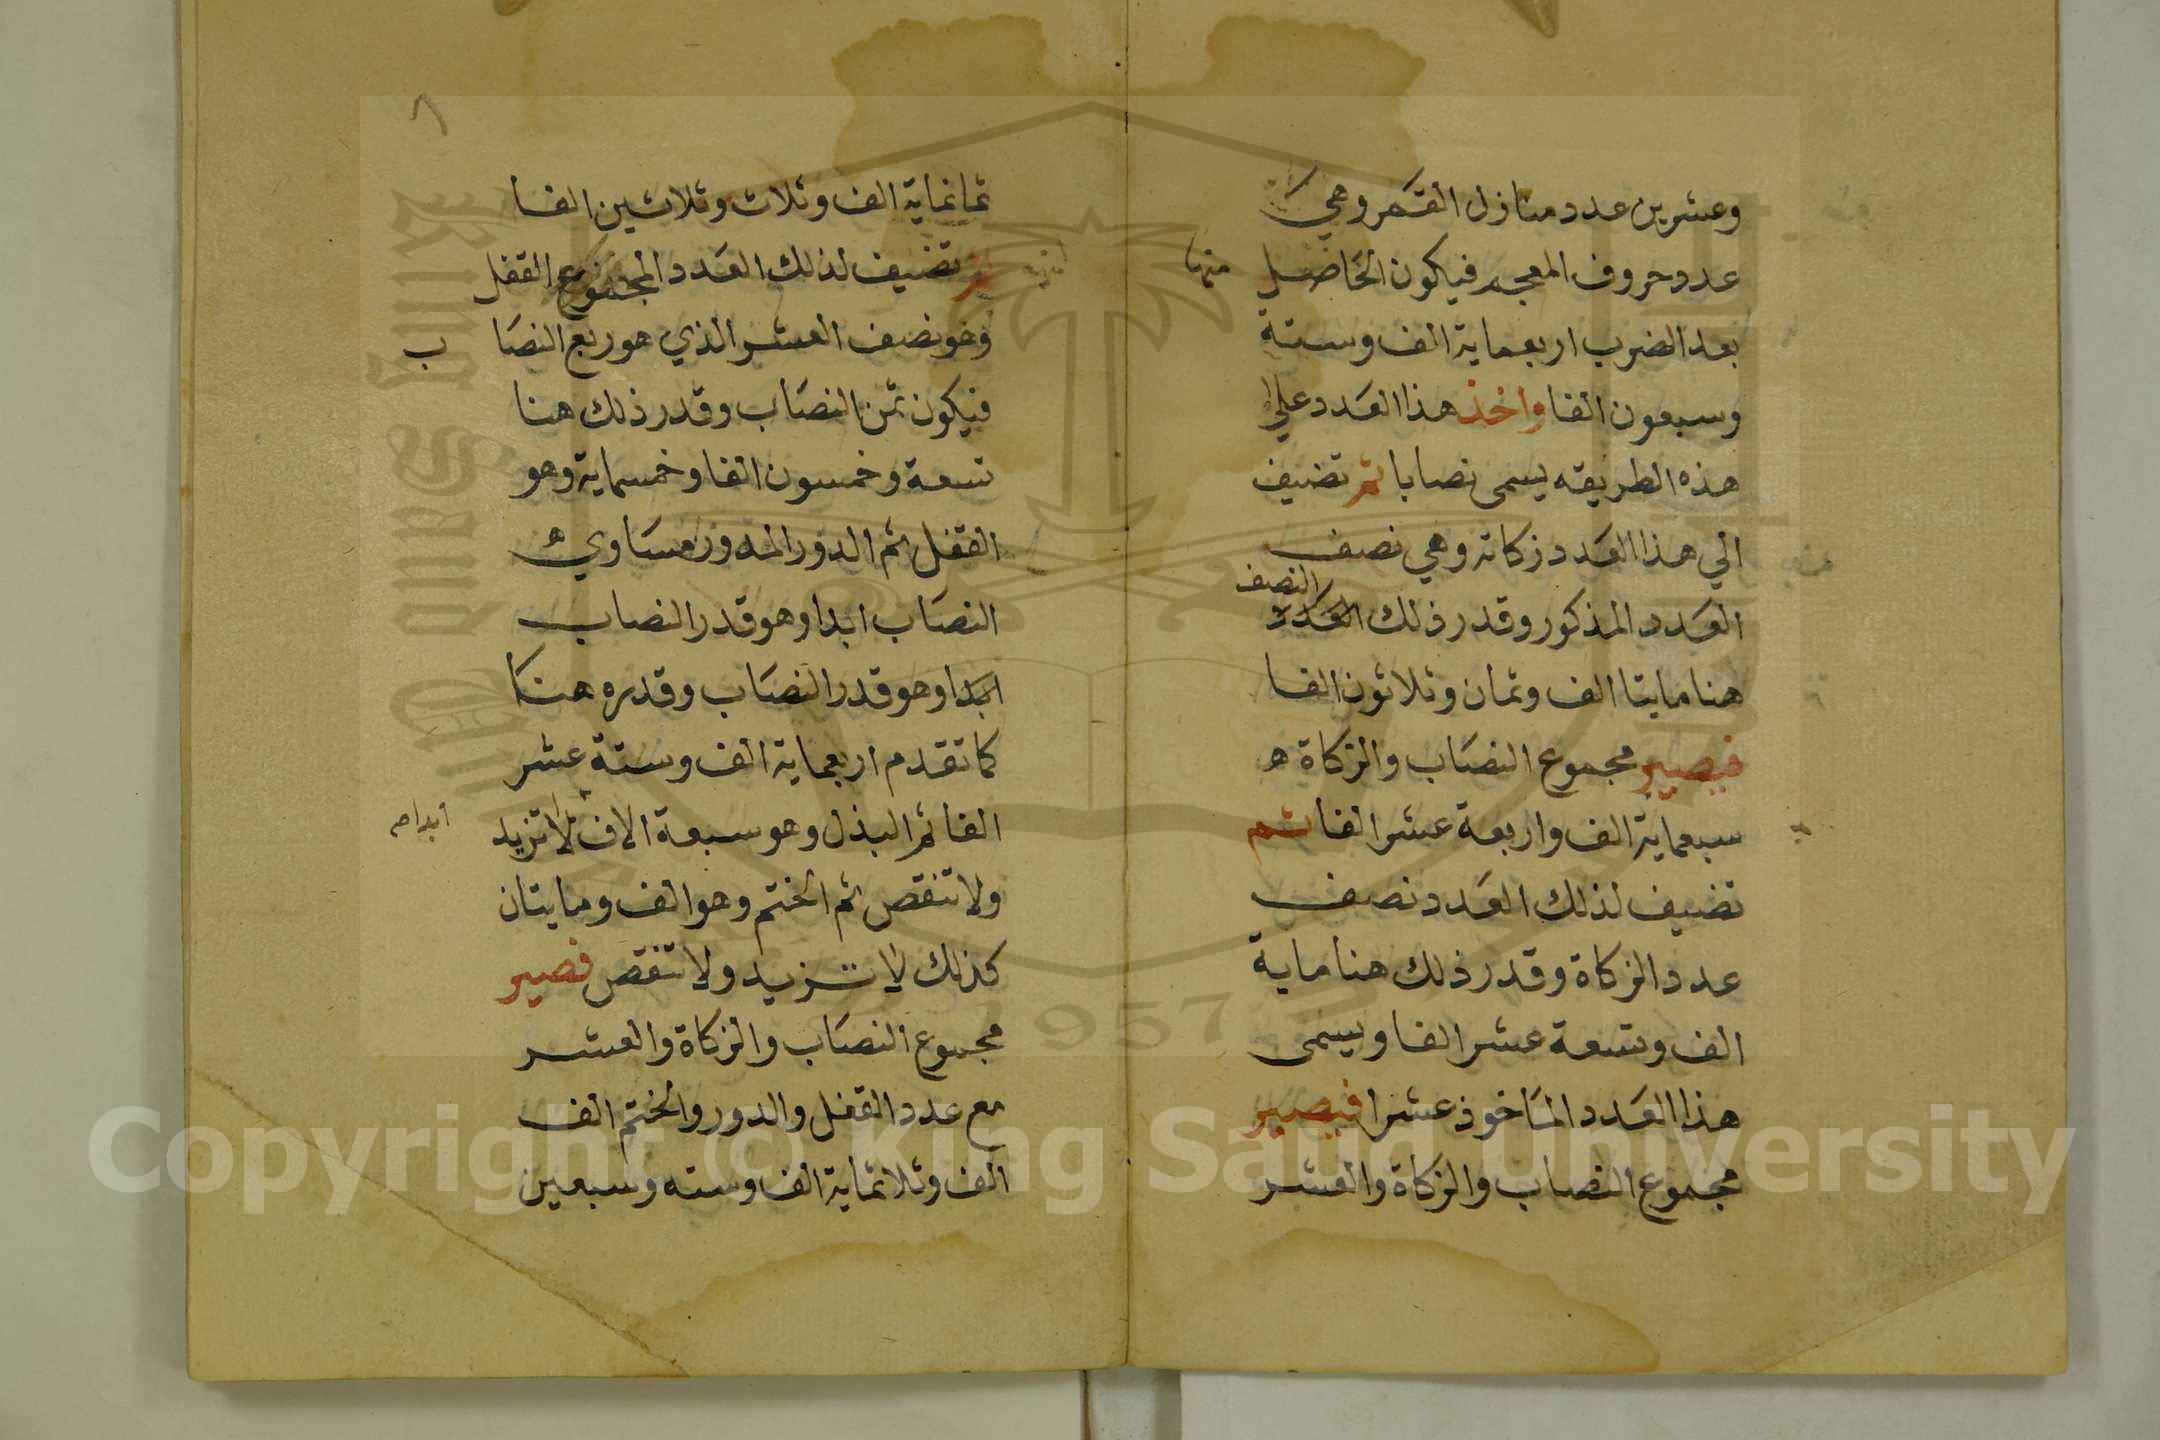 وعشرين عدد منازل القمر وهي
عدد حروف المعجم فيكون الحاصل
منها
بعد الضرب اربعماية الف وستة
وسبعون الفا واخذ هذا العدد علي
هذه الطريقه يسمى نصابا ثم تضيف
الي هذا العدد زكاته وهي نصف
النصف
العدد المذكور وقدر ذلك العدد
هنا مايتا الف وثمان وثلاثون الفا
فيصير مجموع النصاب والزكاة ه
سبعماية الف واربعة عشر الفا ثم
تضيف لذلك العدد نصف
عدد الزكاة وقدر ذلك هنا ماية
الف وتسعة عشر الفا ويسمى
هذا العدد الماخوذ عشرا فيصير
مجموع النصاب والزكاة والعشر
٨
ثمانماية الف وثلاث وثلاثين الفا
ثم تضيف لذلك العدد المجموع القفل
وهو نصف العشر الذي هو ربع النصا
ب
فيكون ثمن النصاب وقدر ذلك هنا
تسعة وخمسون الفا وخمسماية وهو
القفل ثم الدور المه وز مساوي ه
النصاب ابدا وهو قدر النصاب
ابدا وهو قدر النصاب وقدره هنا
كما تقدم اربعماية الف وستة عشر
الفا ثم البذل وهو سبعة الاف لا تزيد
ابداصح
ولا تنقص ثم الختم وهو الف ومايتان
كذلك لا تزيد ولا تنقص فصير
مجموع النصاب والزكاة والعشر
مع عدد القفل والدور والختم الف
الف وثلاثماية الف وسته وسبعين
1957
Copyright © King Saud University